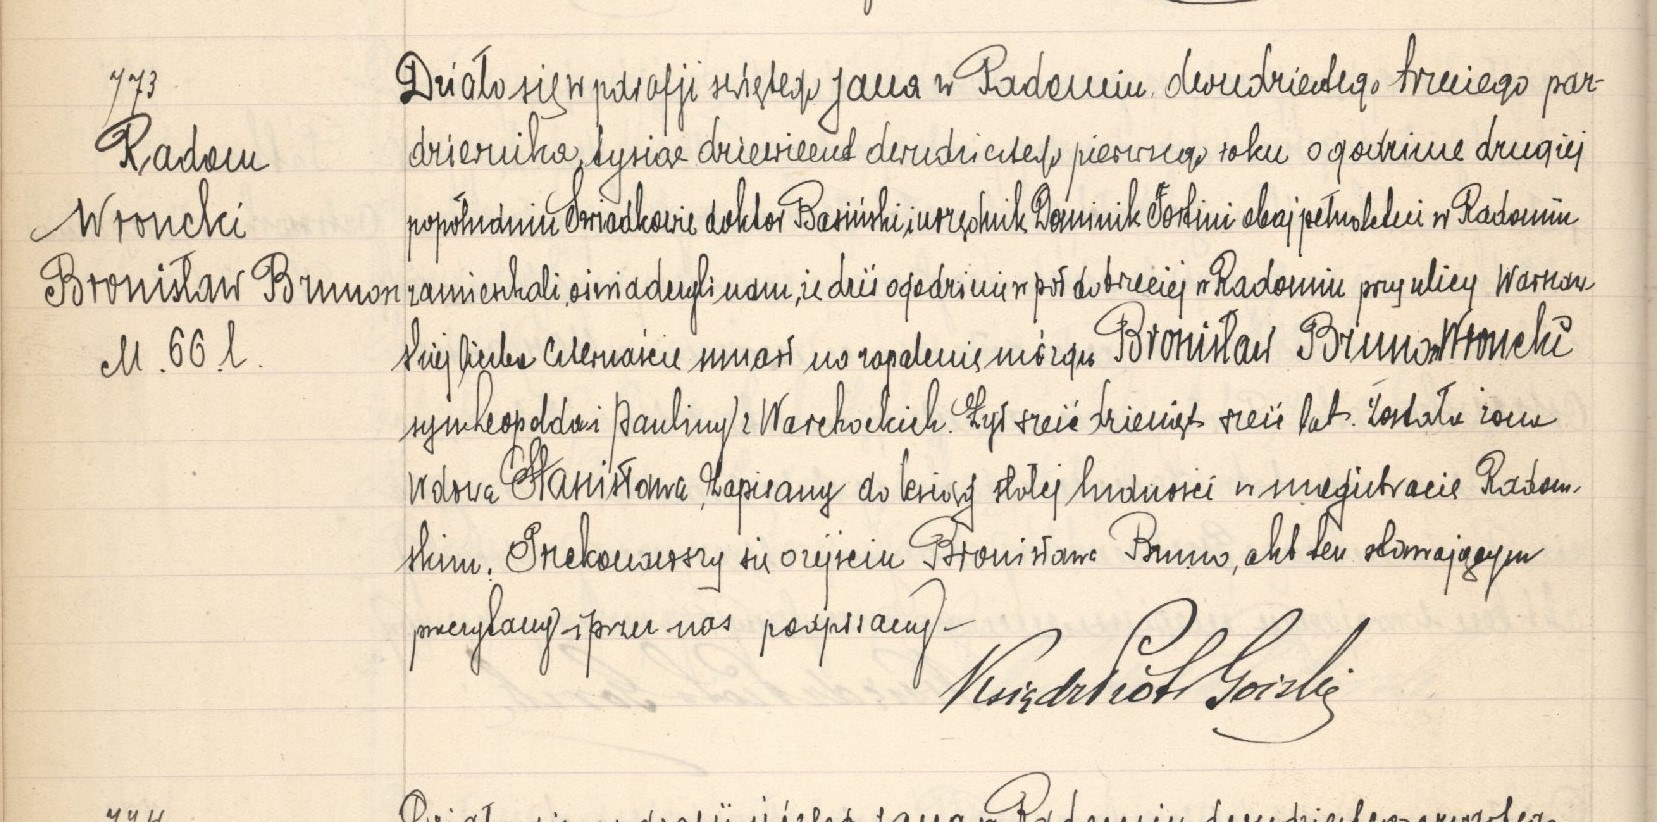 773
Radom
Wroncki
Bronisław Brunon
M. 66 l.
Działo się w parafji świętego Jana w Radomiu, dwudziestego trzeciego paź-
dziernika, tysiąc dziewięćset dwudziestego pierwszego roku o godzinie drugiej
popołudniu Świadkowie doktor Basiński i urzędnik Dominik Fortini obaj pełnoletni w Radomiu
zamieszkali, oświadczyli nam, że dziś o godzinie w pół do trzeciej w Radomiu przy ulicy Warszaw
skiej liczba czternaście umarł na zapalenie mózgu Bronisław Brunon Wroncki
syn Leopolda i Pauliny z Warchockich. Żył sześć dziesiąt sześć lat. Została żona
wdowa Stanisława, Zapisany do księgi stałej ludności w magistracie Radom-
skim. Przekonawszy się o zejściu Bronisława Bruno, akt ten stawającym
przeczytany i przez nas podpisany
Ksiądz Piotr Górski
774